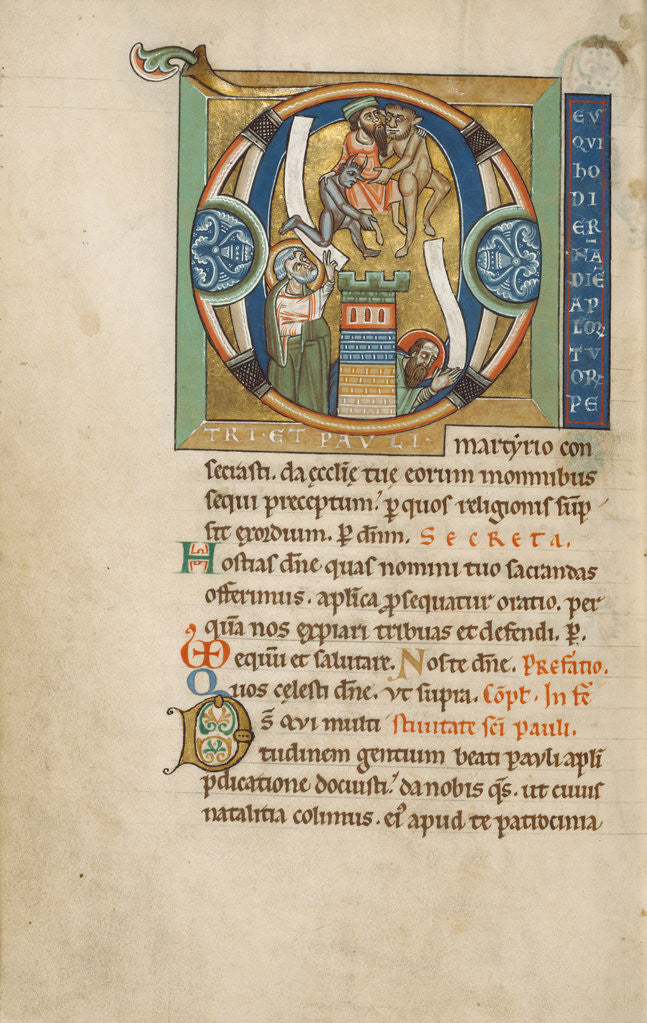 EV
QVI
hO
DI
ER
NA
DIE
AP
LOR
TV
OR
PE
TRI · ET PAVLI ·
martyrio con
secrasti. da ęcclię tue eorum in omnibus
sequi preceptum. ꝑ quos religionis sūp
sit exordium. P dn̄m. SECRETA.
Hostias dn̄e quas nomini tuo sacrandas
offerimus. aplīca ꝓsequatur oratio. per
quā nos expiari tribuas et defendi. P.
equū et salutare. Nos te dn̄e. PREFATIO.
Quos cęlesti dn̄e. ut supra. Cōpl. In fe
D̄s qui multi stiuitate sc̄i pauli.
tudinem gentium beati pauli apli
p̄dicatione docuisti. da nobis q̄s. ut cuius
natalitia colimus. ei᾽ apud te patrocinia